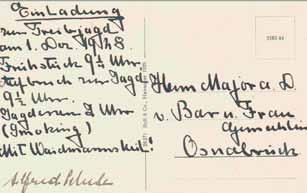 Einladung
zur Treibjagd
am 1. Dez. 1928.
Frühstück 9½ Uhr.
Aufbruch zur Jagd
9¾ Uhr.
Jagdessen 7 Uhr
(Smoking)
Mit Waidmannsheil.
Herrn Major a. D.
v. Bar u. Frau
Gemahlin
Osnabrück